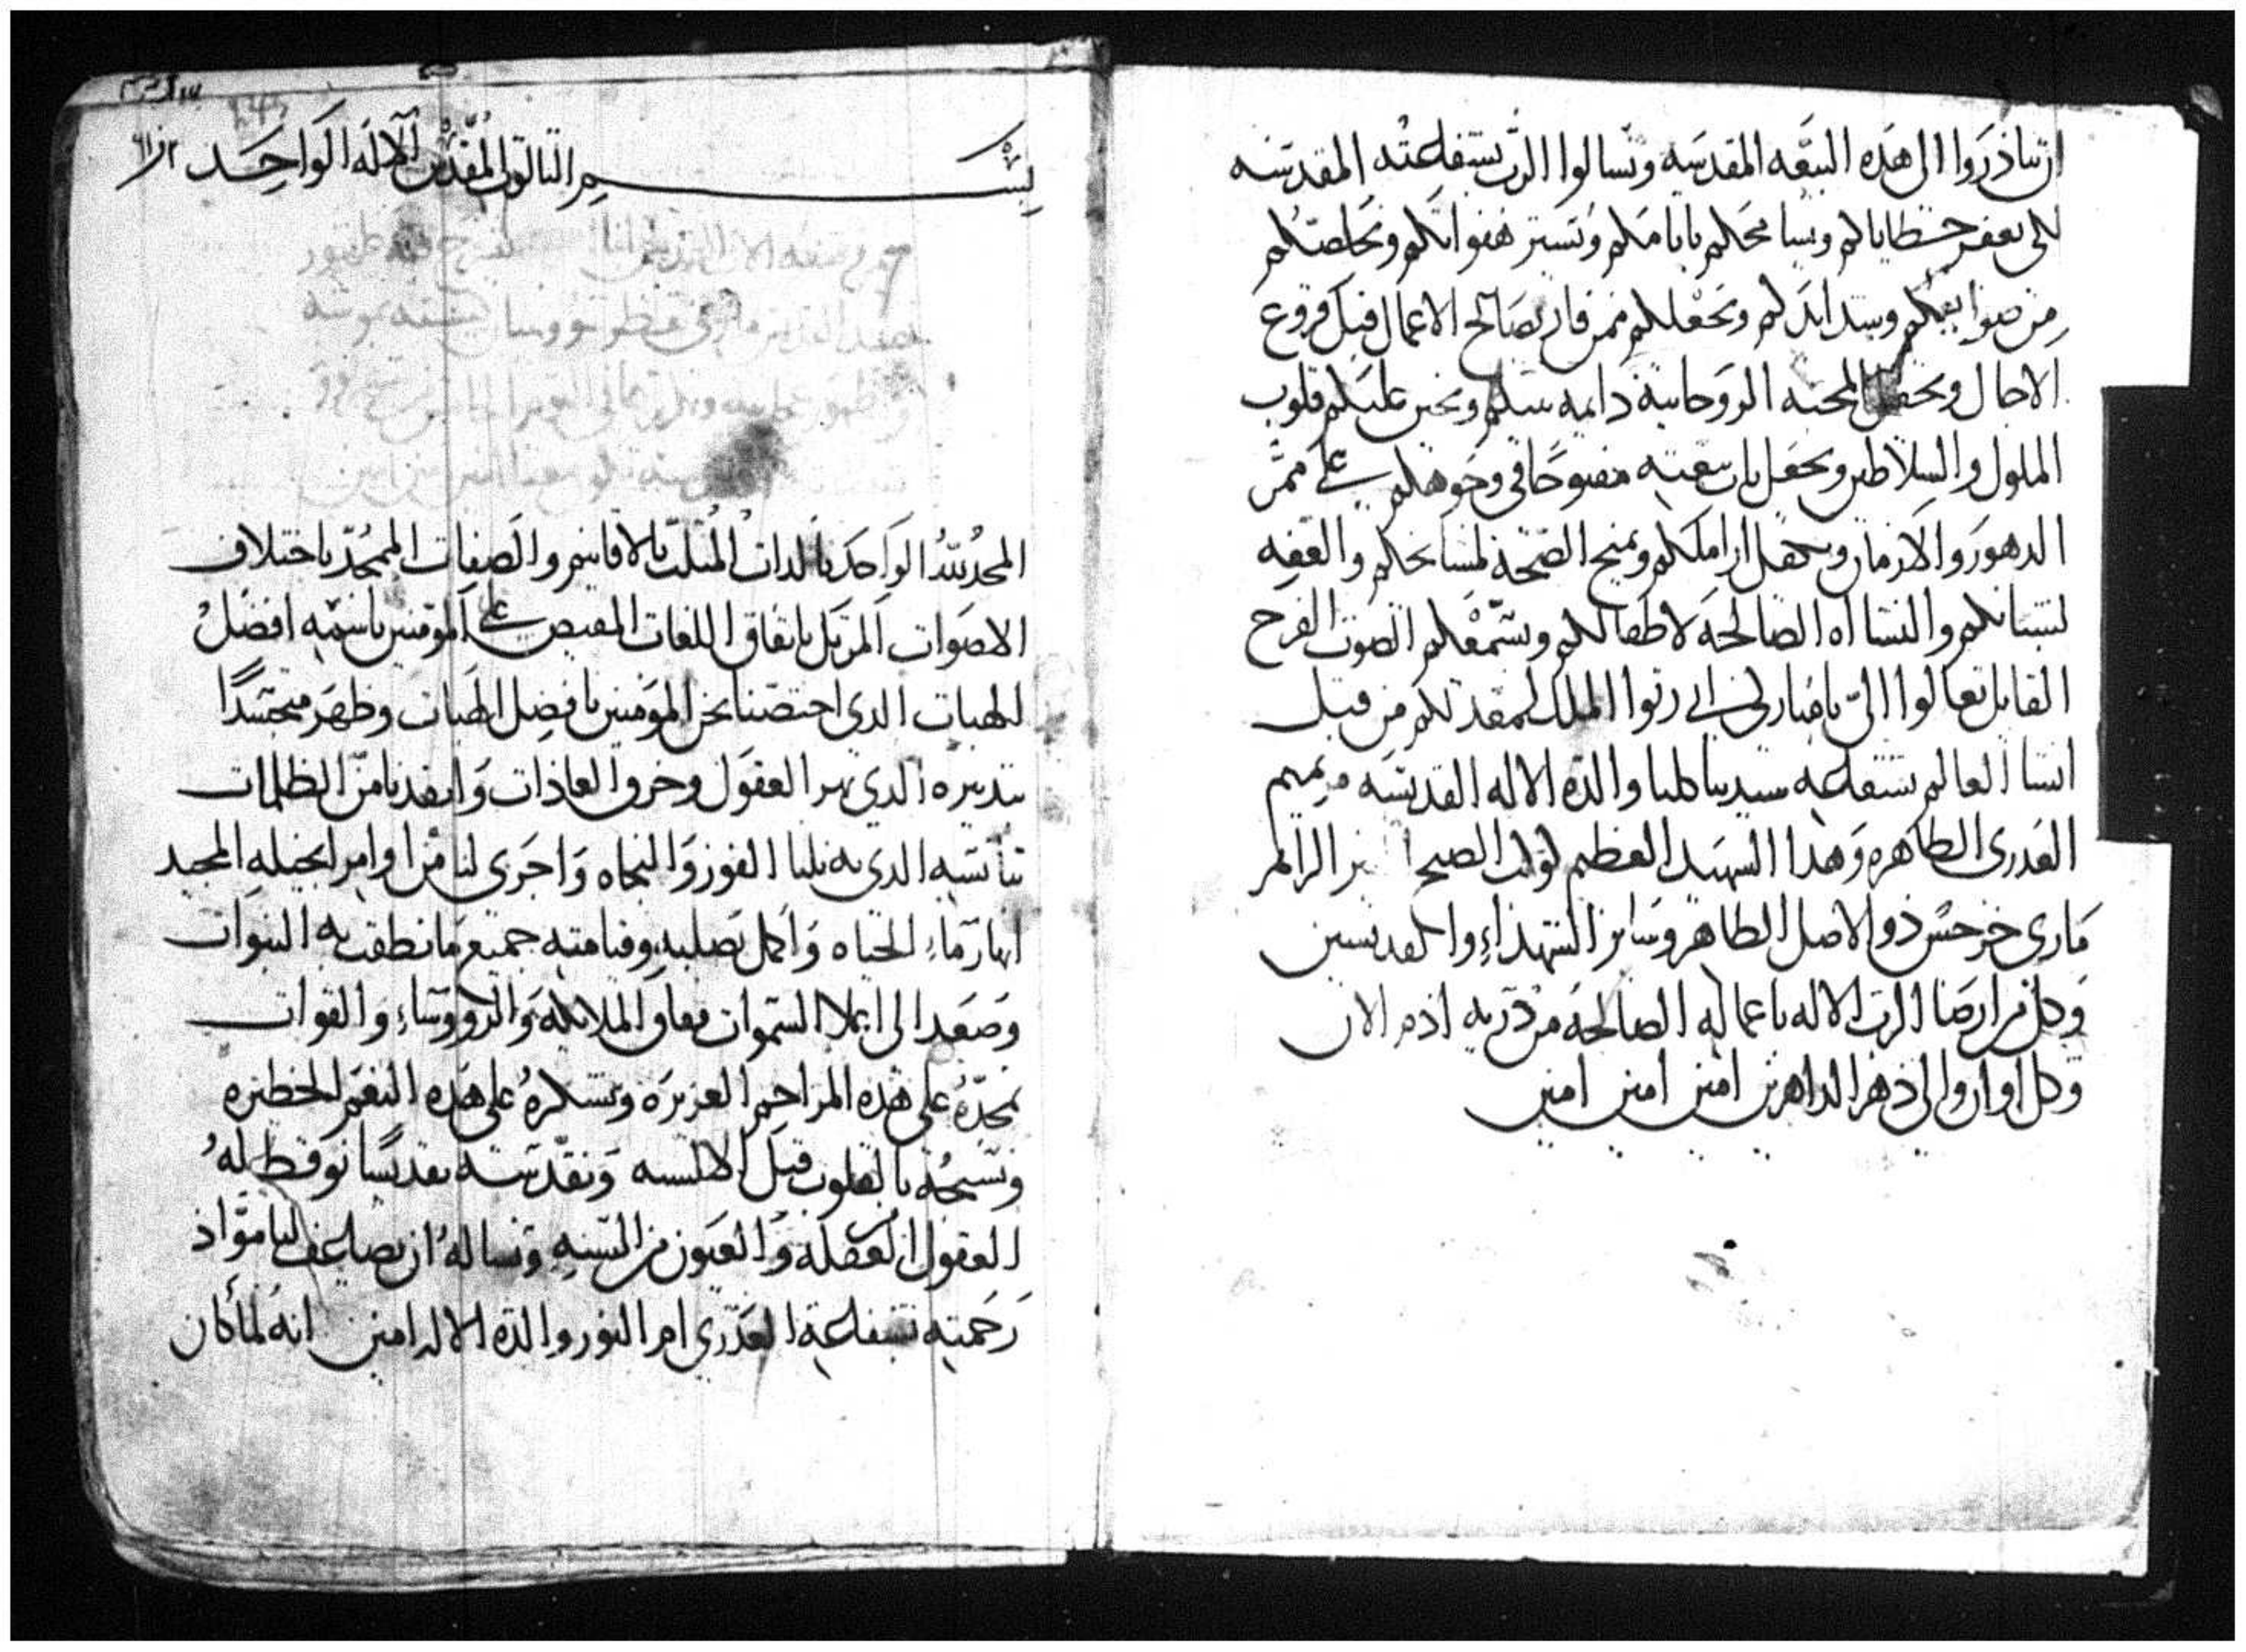 ان تباذروا الى هذه البيعه المقدسه وتسالوا الرب بشفاعته المقدسه
لكى يغفر خطاياكم ويسامحكم باثامكم ويستر هفواتكم ويخلصكم
من صوايبكم وشدايدكم ويجعلكم ممن فاز بصالح الاعمال قبل فروغ
الاجال ويجعل المحبه الروحانية دايمه بينكم ويحنن عليكم قلوب
الملوك والسلاطين ويجعل باب بيعته مفتوحًا في وجوهكم على ممر
الدهور والازمان ويعول اراملكم ويمنح الصحة لمشايخكم والعفه
لشبانكم والنشااه الصالحة لاطفالكم ويسمعكم الصوت الفرح
القايل تعالوا اليّ يا مباركي ابي رتوا الملك المعد لكم من قبل
انشا العالم بشفاعه سيدتنا كلنا والدة الاله القديسه مريم
العدرى الطاهره وهدا الشهيد العظيم كوكب الصبح المنير الزاهر
مارى جرجس ذو الاصل الطاهر وساير الشهداء والقديسين
وكل من ارضا الرب الاله باعماله الصالحة من ذريه ادم الان
وكل اوان والي دهر الداهرين امين امين امين
بسم التالوت المقدس الاله الواحد
المجد لله الواحد بالدات المثلت بالاقانيم والصفات الممجد باختلاف
الاصوات المرتل باتفاق اللغات المفيض على المومنين باسمه افضل
الهبات الدي اختصنا نحن المومنين بافضل الطيات وظهر متجسدًا
بتدبيره الدي بهر العقول وخرق العاذات وانقدنا من الظلمات
بتأنسه الدى به نلنا الفوز والنجاه واجرى لنا من اوامر انجيله المجيد
انهار ماء الحياه واكمل بصلبه وقيامته جميع ما نطقت به النبوات
وصعد الى اعلا السموات فوق الملايكة والرووساء والقوات
نمجده على هده المراحم العزيزه ونشكره على هده النعم الخطيره
ونسبحه بالقلوب قبل الالسنه ونقدسه تقديسًا توقظ له
العقول من الغفلة والعيون من السنه ونساله ان يضاعف لنا مواد
رحمته بشفاعة العدرى ام النور والدة الاله امين انه لما كان